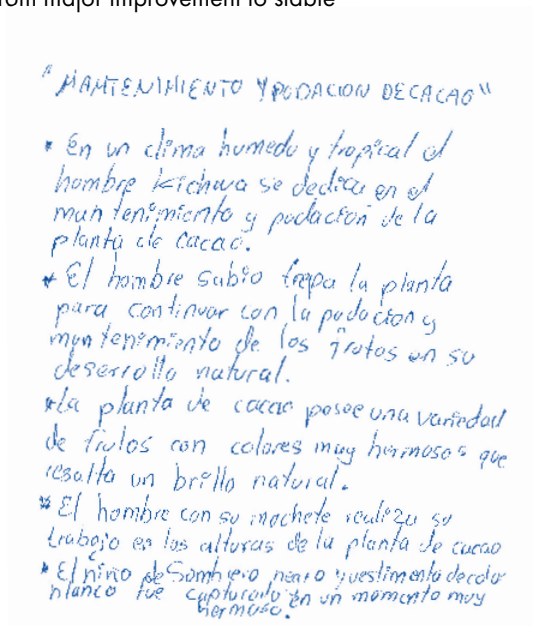 from major improvement to stable
"MANTENIMIENTO Y PODACION DE CACAO"
* En un clima humedo y tropical el
hombre kichwa se dedica en el
mantenimiento y podación de la
planta de cacao.
* El hombre sabio trepa la planta
para continuar con la podacion y
mantenimiento de los frutos en su
deserrollo natural.
* La planta de cacao posee una variedad
de frutos con colores muy hermosos que
resalta un brillo natural.
* El hombre con su mochete realiza su
trabajo en las alturas de la planta de cacao
* El niño de Sombrero negro y vestimenta de color
blanco fue capturado en un momento muy
hermoso.